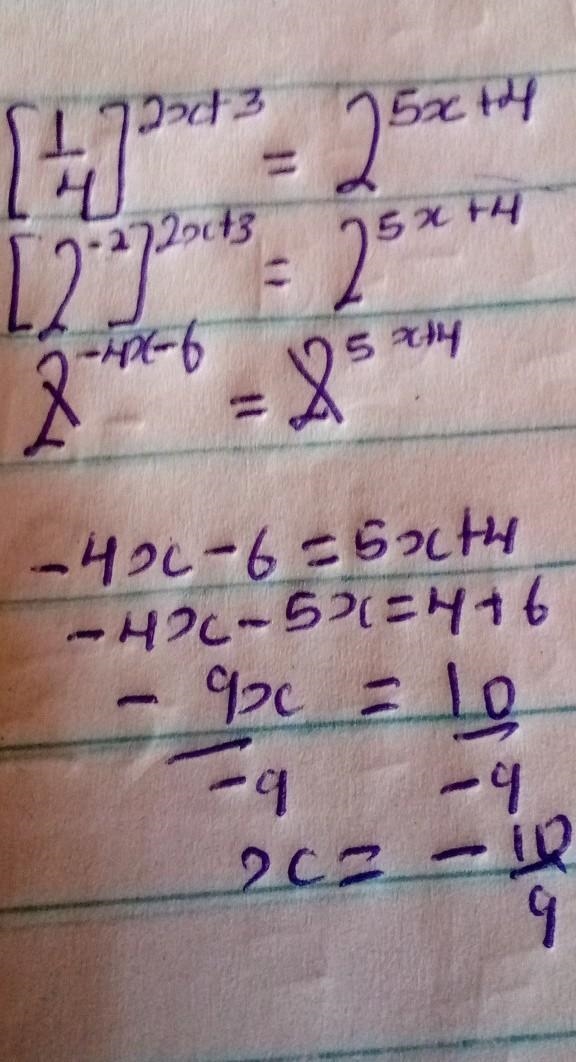 [1/4]^{2x+3} = 2^{5x+4}
[2^{-2}]^{2x+3} = 2^{5x+4}
2^{-4x-6} = 2^{5x+4}
-4x-6=5x+4
-4x-5x=4+6
-9x = 10
-9 -9
x= -10/9